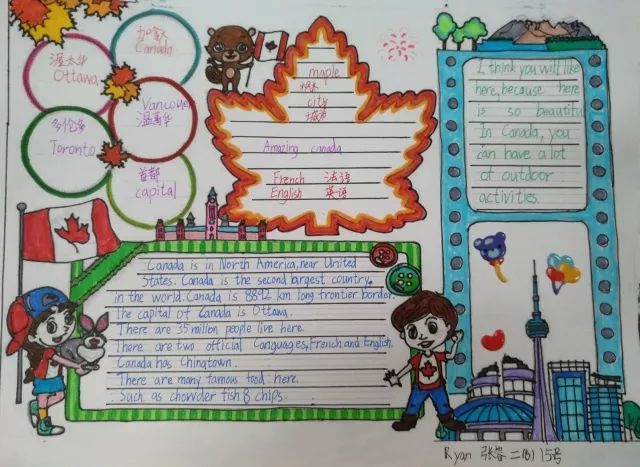 加拿大
Canada
渥太华
Ottawa
Vancouver
温哥华
多伦多
Toronto
首都
capital
maple
枫木
city
城市
Amazing canada
French 法语
English 英语
I think you well like
here, because here
is so beautiful
In Canada, you
can have a lot
of outdoor
activities.
Canada is in North America, near United
States. Canada is the second largest country
in the world. Canada is 8892 km long frontier border.
The capital of Canada is Ottawa.
There are 35 million people live here.
There are two official Languages, French and English.
Canada has Chinatown.
There are many famous food here.
Such as chowder fish & chips.
Ryan 张 二(6) 15号